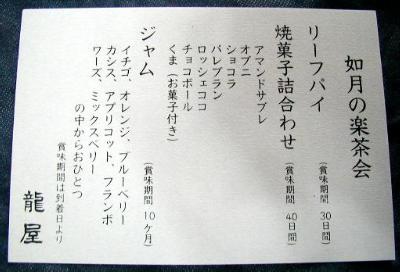 如月の楽茶会
リーフパイ (賞味期間 30日間)
焼菓子詰合わせ (賞味期間 40日間)
アマンドサブレ
オブニ
ショコラ
バレブラン
ロッシェココ
チョコボール
くま (お菓子付き)
ジャム (賞味期間 10ケ月)
イチゴ、オレンジ、ブルーベリー
カシス、アプリコット、フランボ
ワーズ、ミックスベリー
の中からおひとつ
賞味期間は到着日より
龍屋